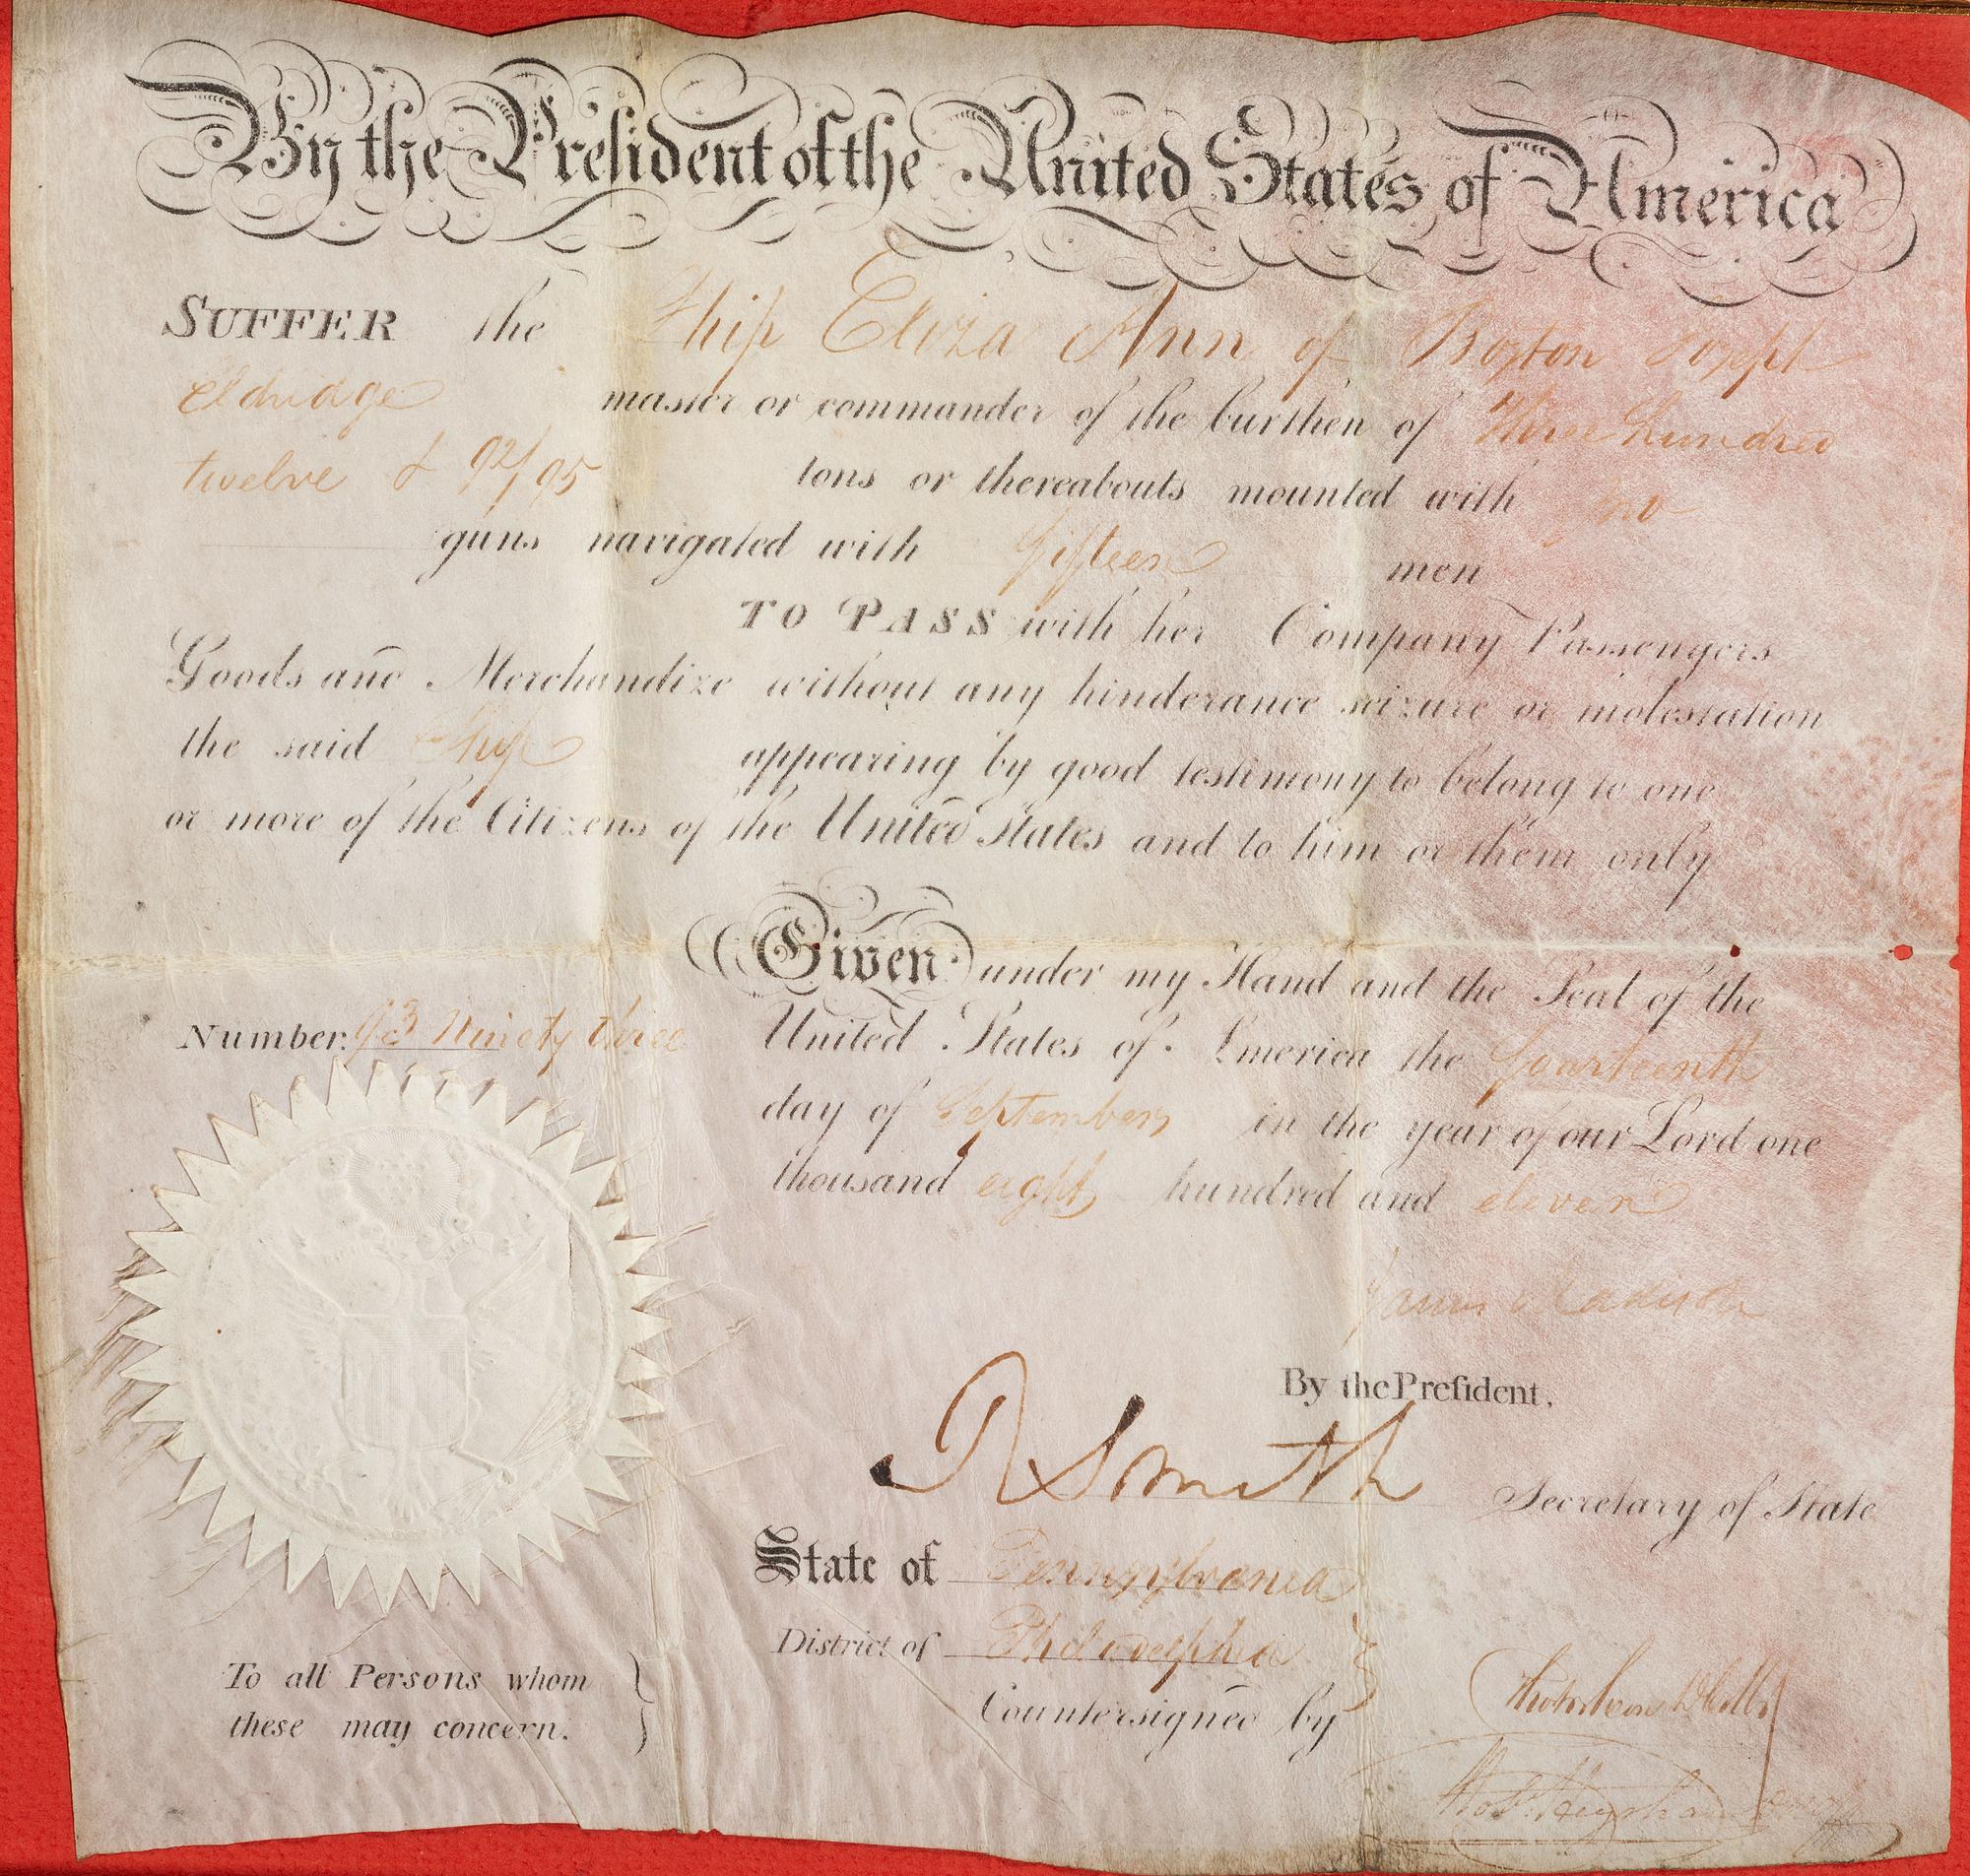 By the President of the United States of America
SUFFER the Ship Eliza Ann of Boston Joseph
Eldridge master or commander of the burthen of Three hundred
twelve & 92/95 tons or thereabouts mounted with no
guns navigated with fifteen men
TO PASS with her Company Passengers
Goods and Merchandize without any hinderance seizure or molestation
the said Ship appearing by good testimony to belong to one
or more of the Citizens of the United States and to him or them only
Given under my Hand and the Seal of the
United States of America the fourteenth
day of September in the year of our Lord one
thousand eight hundred and eleven
Number. 93 Ninety three
James Madison
By the Preſident,
R Smith Secretary of State
State of Pennsylvania
District of Philadelphia
Countersigned by
To all Persons whom
these may concern.